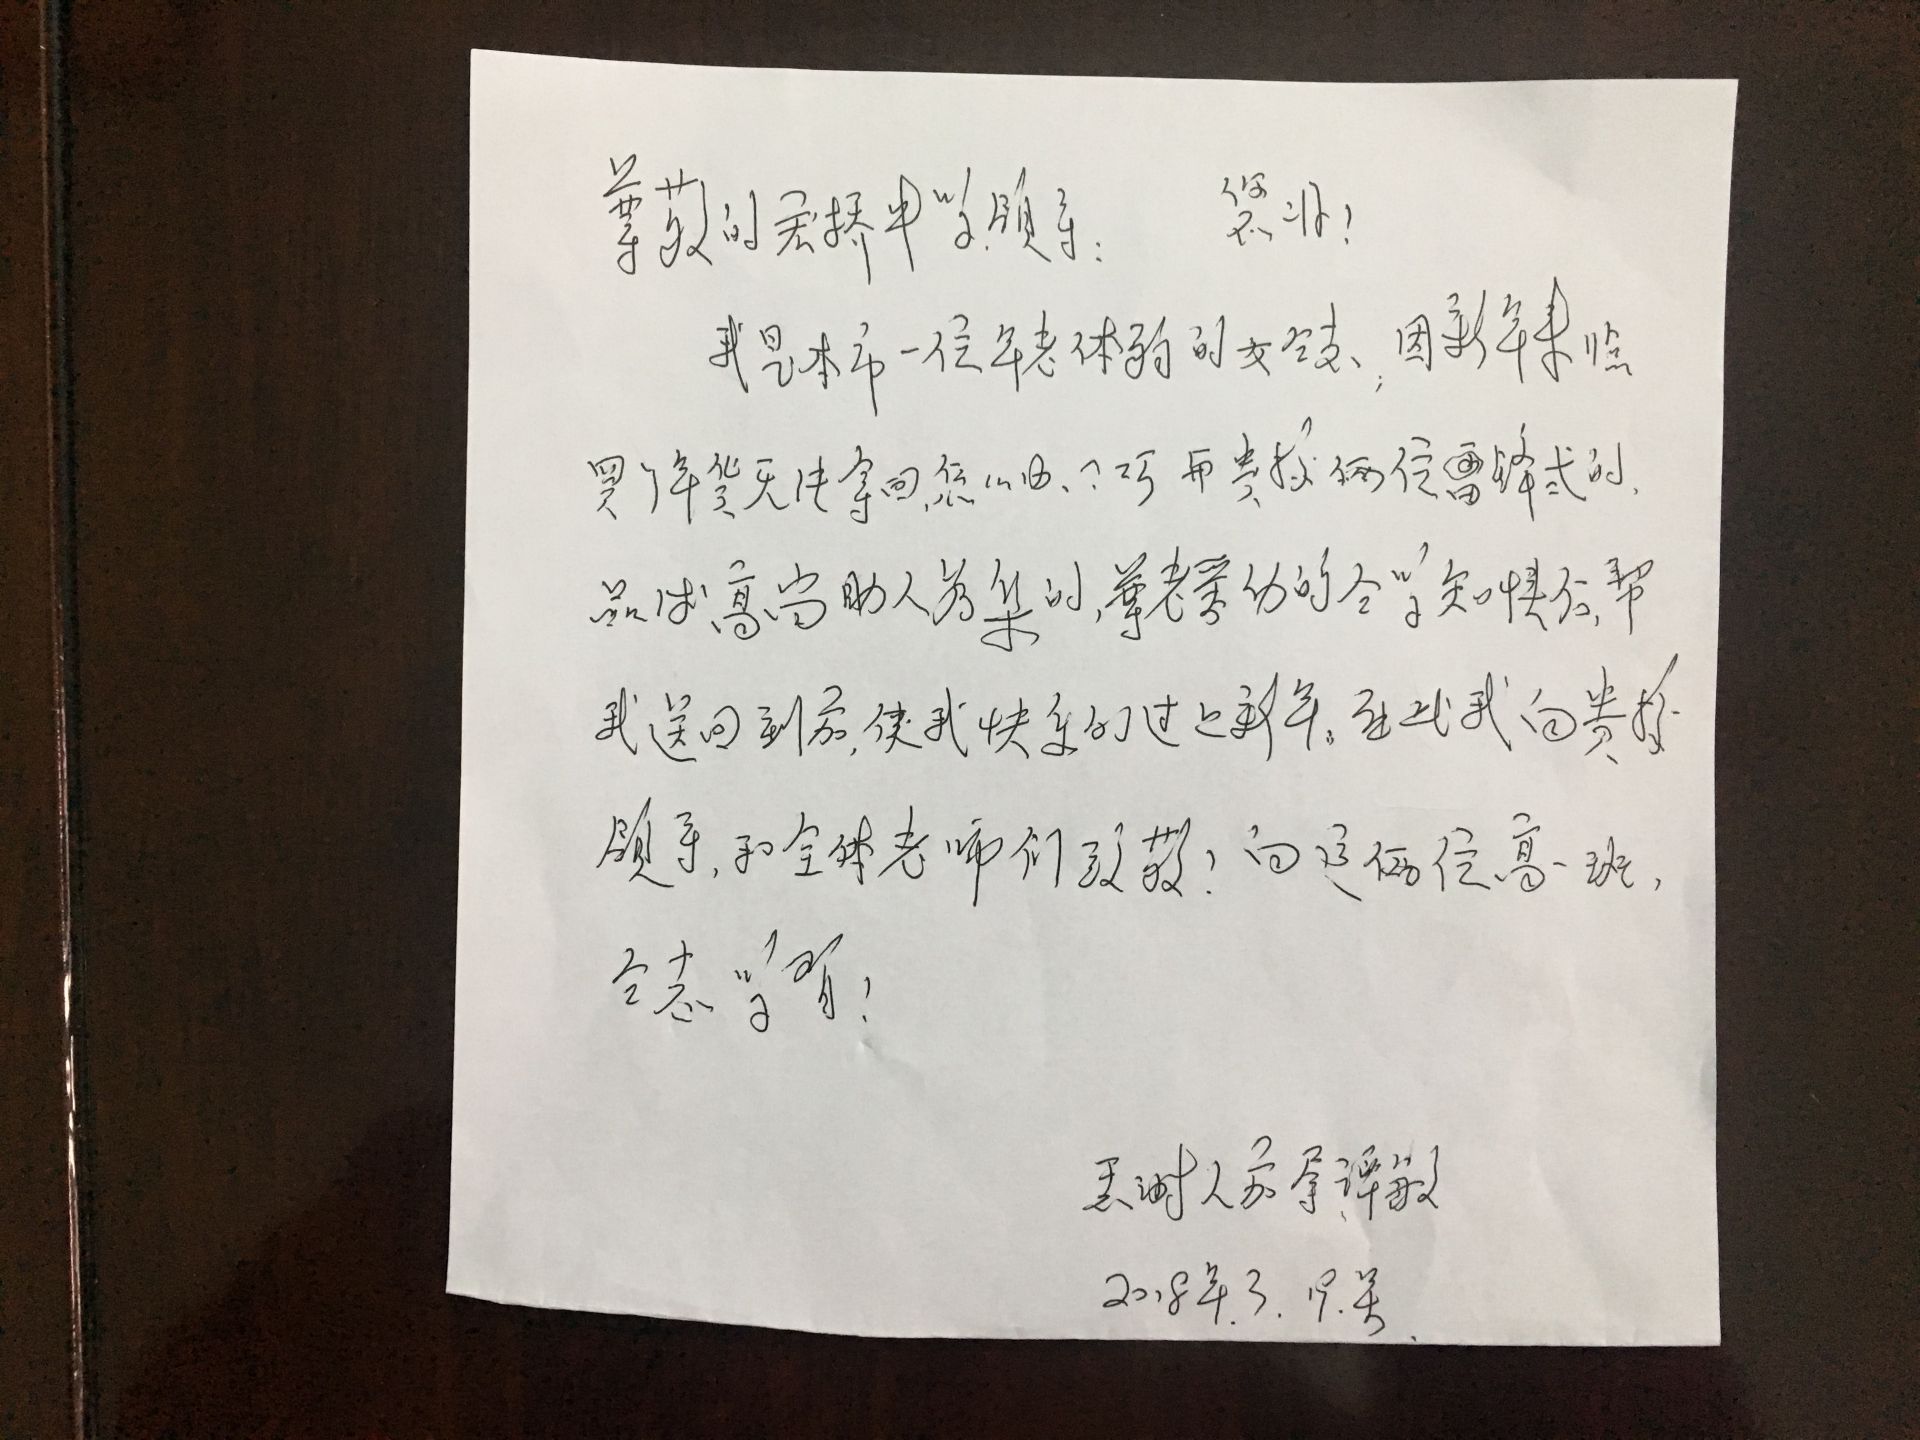 尊敬的宏桥中学领导： 您好！
我是本市一位年老体弱的女
因新年来临
买年货无法拿回怎么
？巧
贵校俩位雷锋式的、
品
高尚助人为
的，尊老爱幼的仝学知
帮
我送回到家，使我快乐的过上新年。在此我向贵校
领导，和全体老师们致敬！向这俩位高一班，
仝志学
！
人家
谭敏
2018年.3.19.